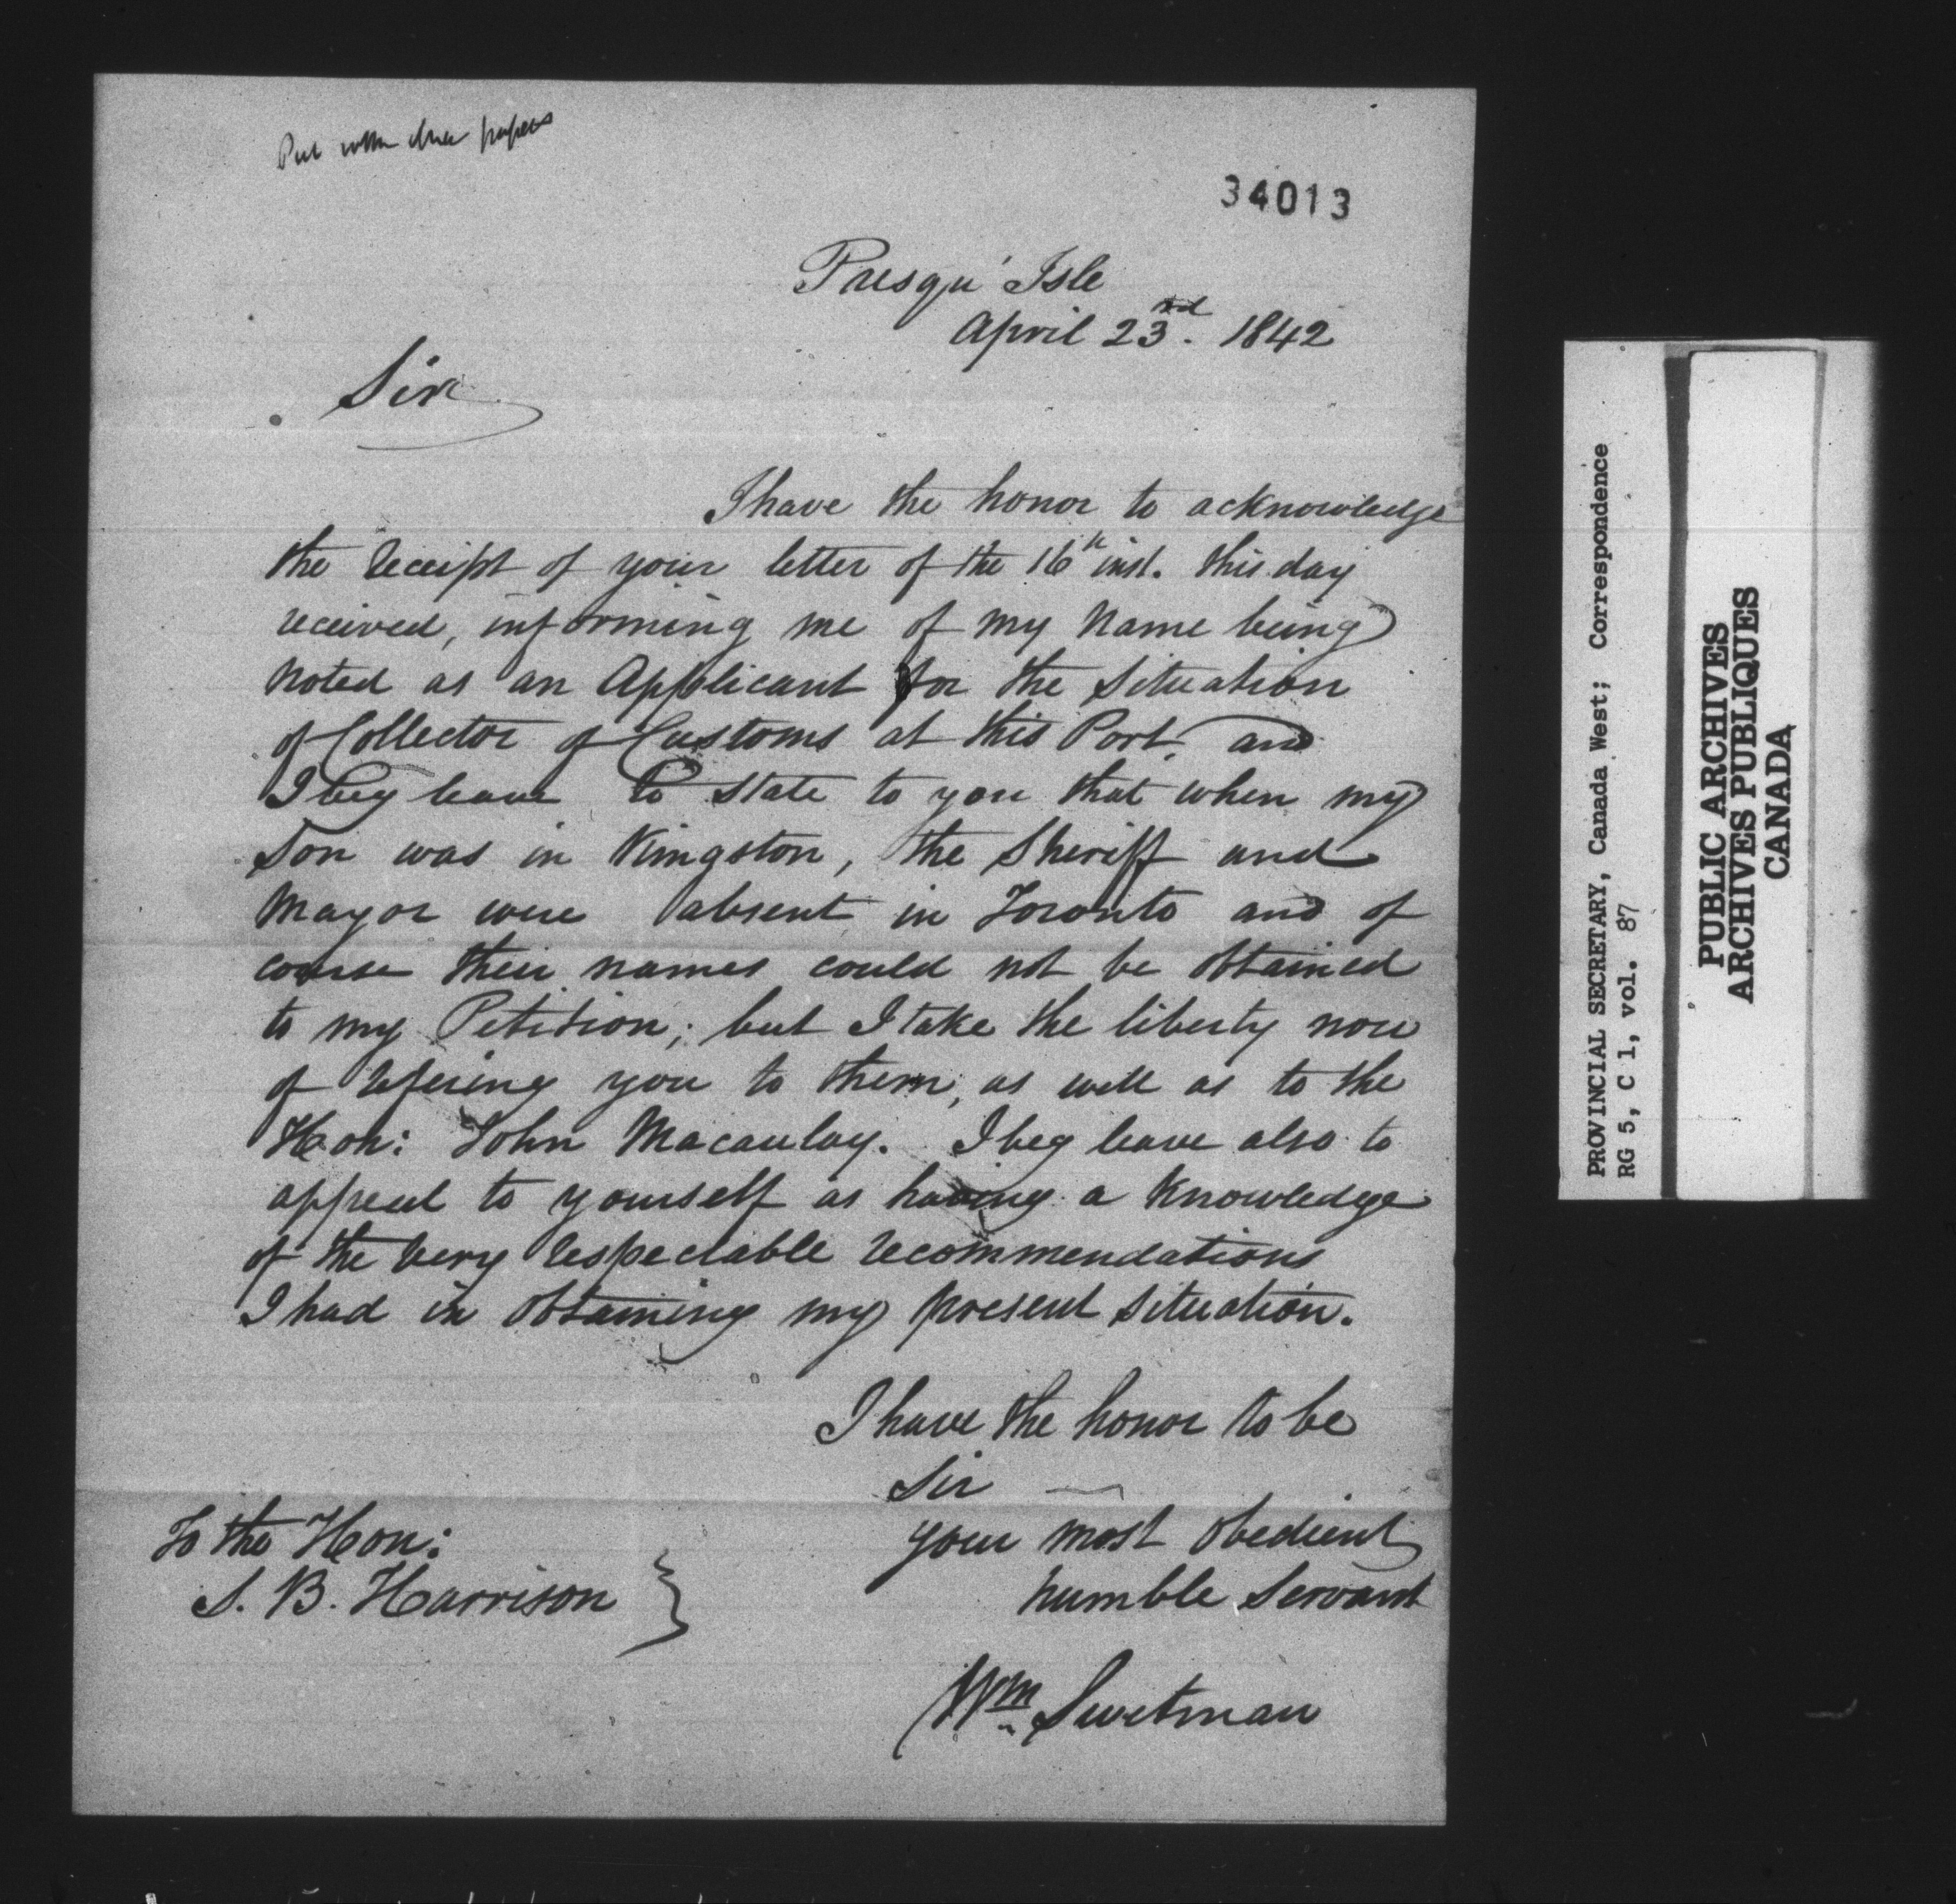 Put with other papers
34013
Presqu' Isle
April 23rd. 1842
Sir
I have the honor to acknowledge
the receipt of your letter of the 16th inst. this day
received, informing me of my Name being
noted as an Applicant for the Situation
of Collector of Customs at this Port, and
I beg leave to state to you that when my
Son was in Kingston, the Sheriff and
Mayor were absent in Toronto and of
course their names could not be obtained
to my Petition; but I take the liberty now
of refering you to them, as well as to the
Hon: John Macaulay. I beg leave also to
appeal to yourself as having a knowledge
of the very respectable recommendations
I had in obtaining my present situation.
I have the honor to be
Sir
your most obedient
humble Servant
Wm Swetman
To the Hon:
S. B. Harrison
PROVINCIAL SECRETARY, Canada West; Correspondence
RG 5, C 1, vol. 87
PUBLIC ARCHIVES
ARCHIVES PUBLIQUES
CANADA